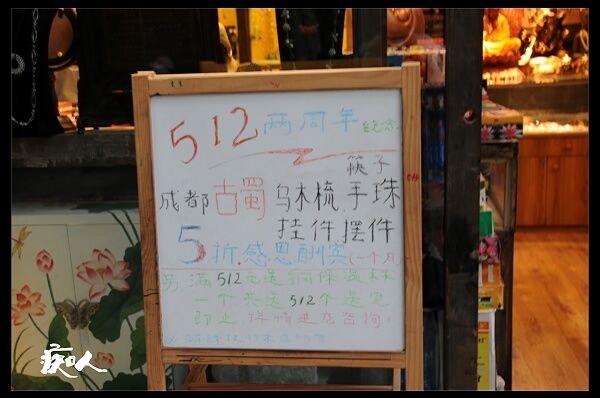 512两周年纪念
筷子
成都古蜀乌木梳.手珠
挂件.摆件
5折感恩酬宾(一个月)
另满512元送钢保温杯
一个共送512个送完
即止.详情进店咨询
痴人